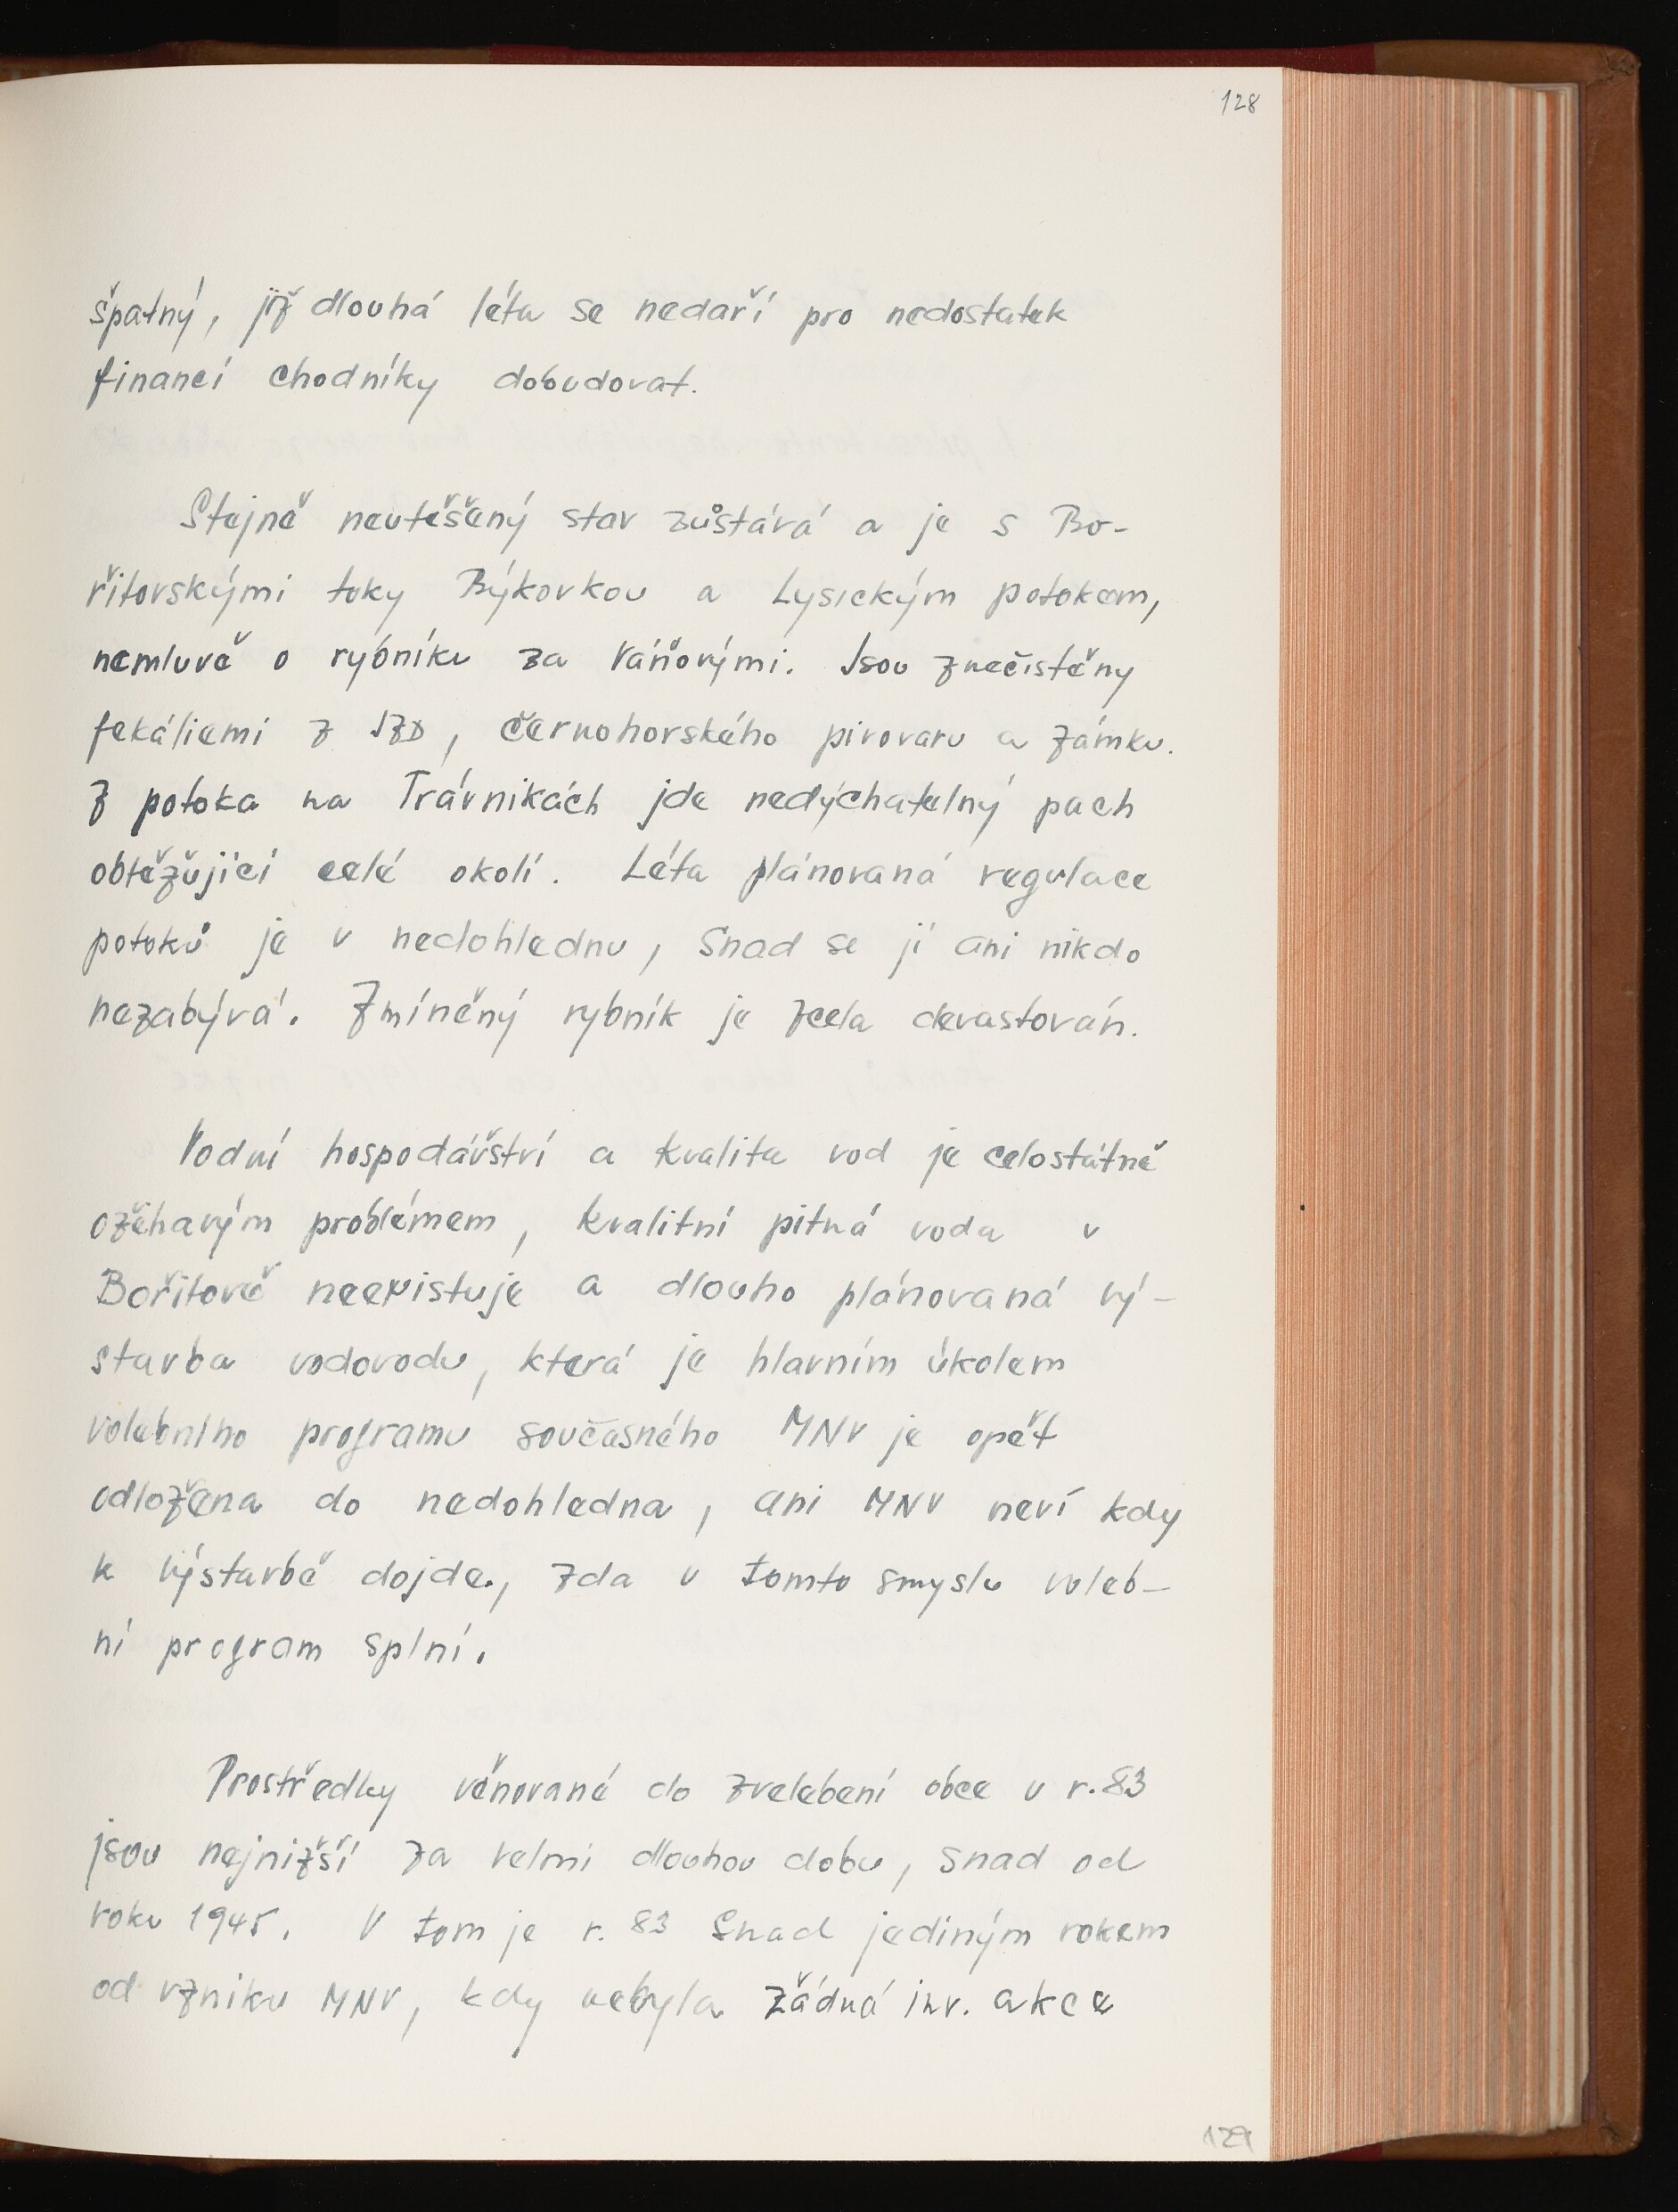 128
špatný, již dlouhá léta se nedaří pro nedostatek
financí chodníky dobudovat.
Stejně neutěšený stav zůstává a je s Bo-
řitovskými toky Býkovkou a Lysickým potokem,
nemluvě o rybníku za Váňovými. Jsou znečistěny
fekáliemi z JZD, černohorského pivovaru a zámku.
Z potoka na Trávnikách jde nedýchatelný pach
obtěžující celé okolí. Léta plánovaná regulace
potoků je v nedohlednu, snad se jí ani nikdo
nezabývá. Zmíněný rybník je zcela devastován.
Vodní hospodářství a kvalita vod je celostátně
ožehavým problémem, kvalitní pitná voda v
Bořitově neexistuje a dlouho plánovaná vý-
stavba vodovodu, která je hlavním úkolem
volebního programu současného MNV je opět
odložena do nedohledna, ani MNV neví kdy
k výstavbě dojde., zda v tomto smyslu voleb-
ní program splní.
Prostředky věnované do zvelebení obce v r. 83
jsou nejnižší za velmi dlouhou dobu, snad od
roku 1945. V tom je r. 83 snad jediným rokem
od vzniku MNV, kdy nebyla žádná inv. akce
129